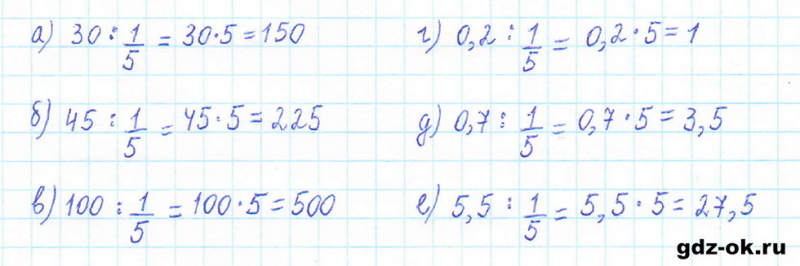 а) 30 : 1/5 = 30·5 = 150
б) 45 : 1/5 = 45·5 = 225
в) 100 : 1/5 = 100·5 = 500
г) 0,2 : 1/5 = 0,2·5 = 1
д) 0,7 : 1/5 = 0,7·5 = 3,5
е) 5,5 : 1/5 = 5,5·5 = 27,5
gdz-ok.ru